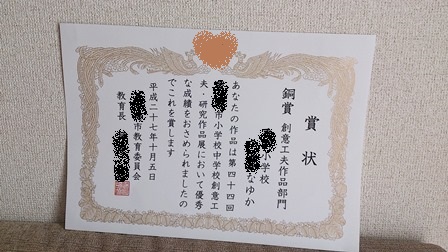 賞状
銅賞 創意工夫作品部門
小学校
なゆか
あなたの作品は第四十四回
市小学校中学校創意工
夫・研究作品展において優秀
な成績をおさめられましたの
でこれを賞します
平成二十七年十月五日
市教育委員会
教育長